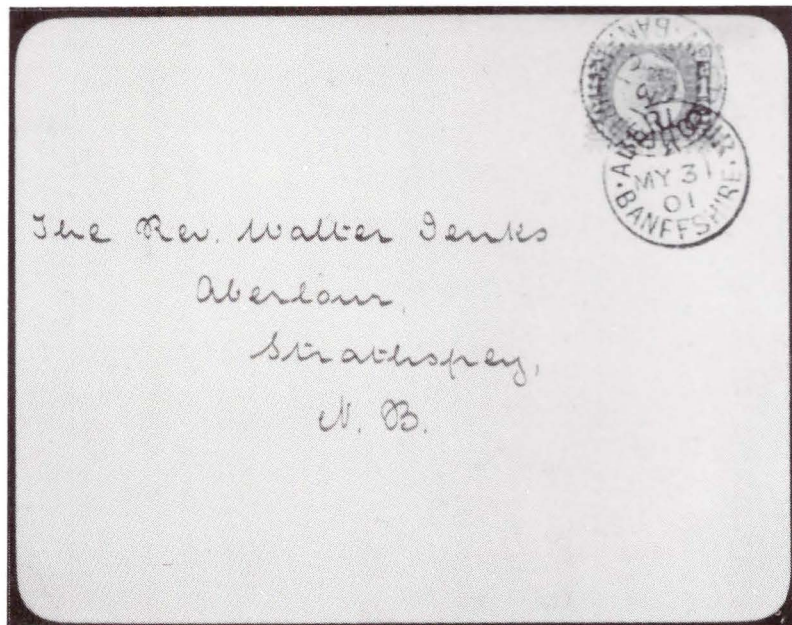 ABERLOUR
MY 31
01
BANFFSHIRE
The Rev. Walter Jenks
Aberlour,
Strathspey,
N. B.